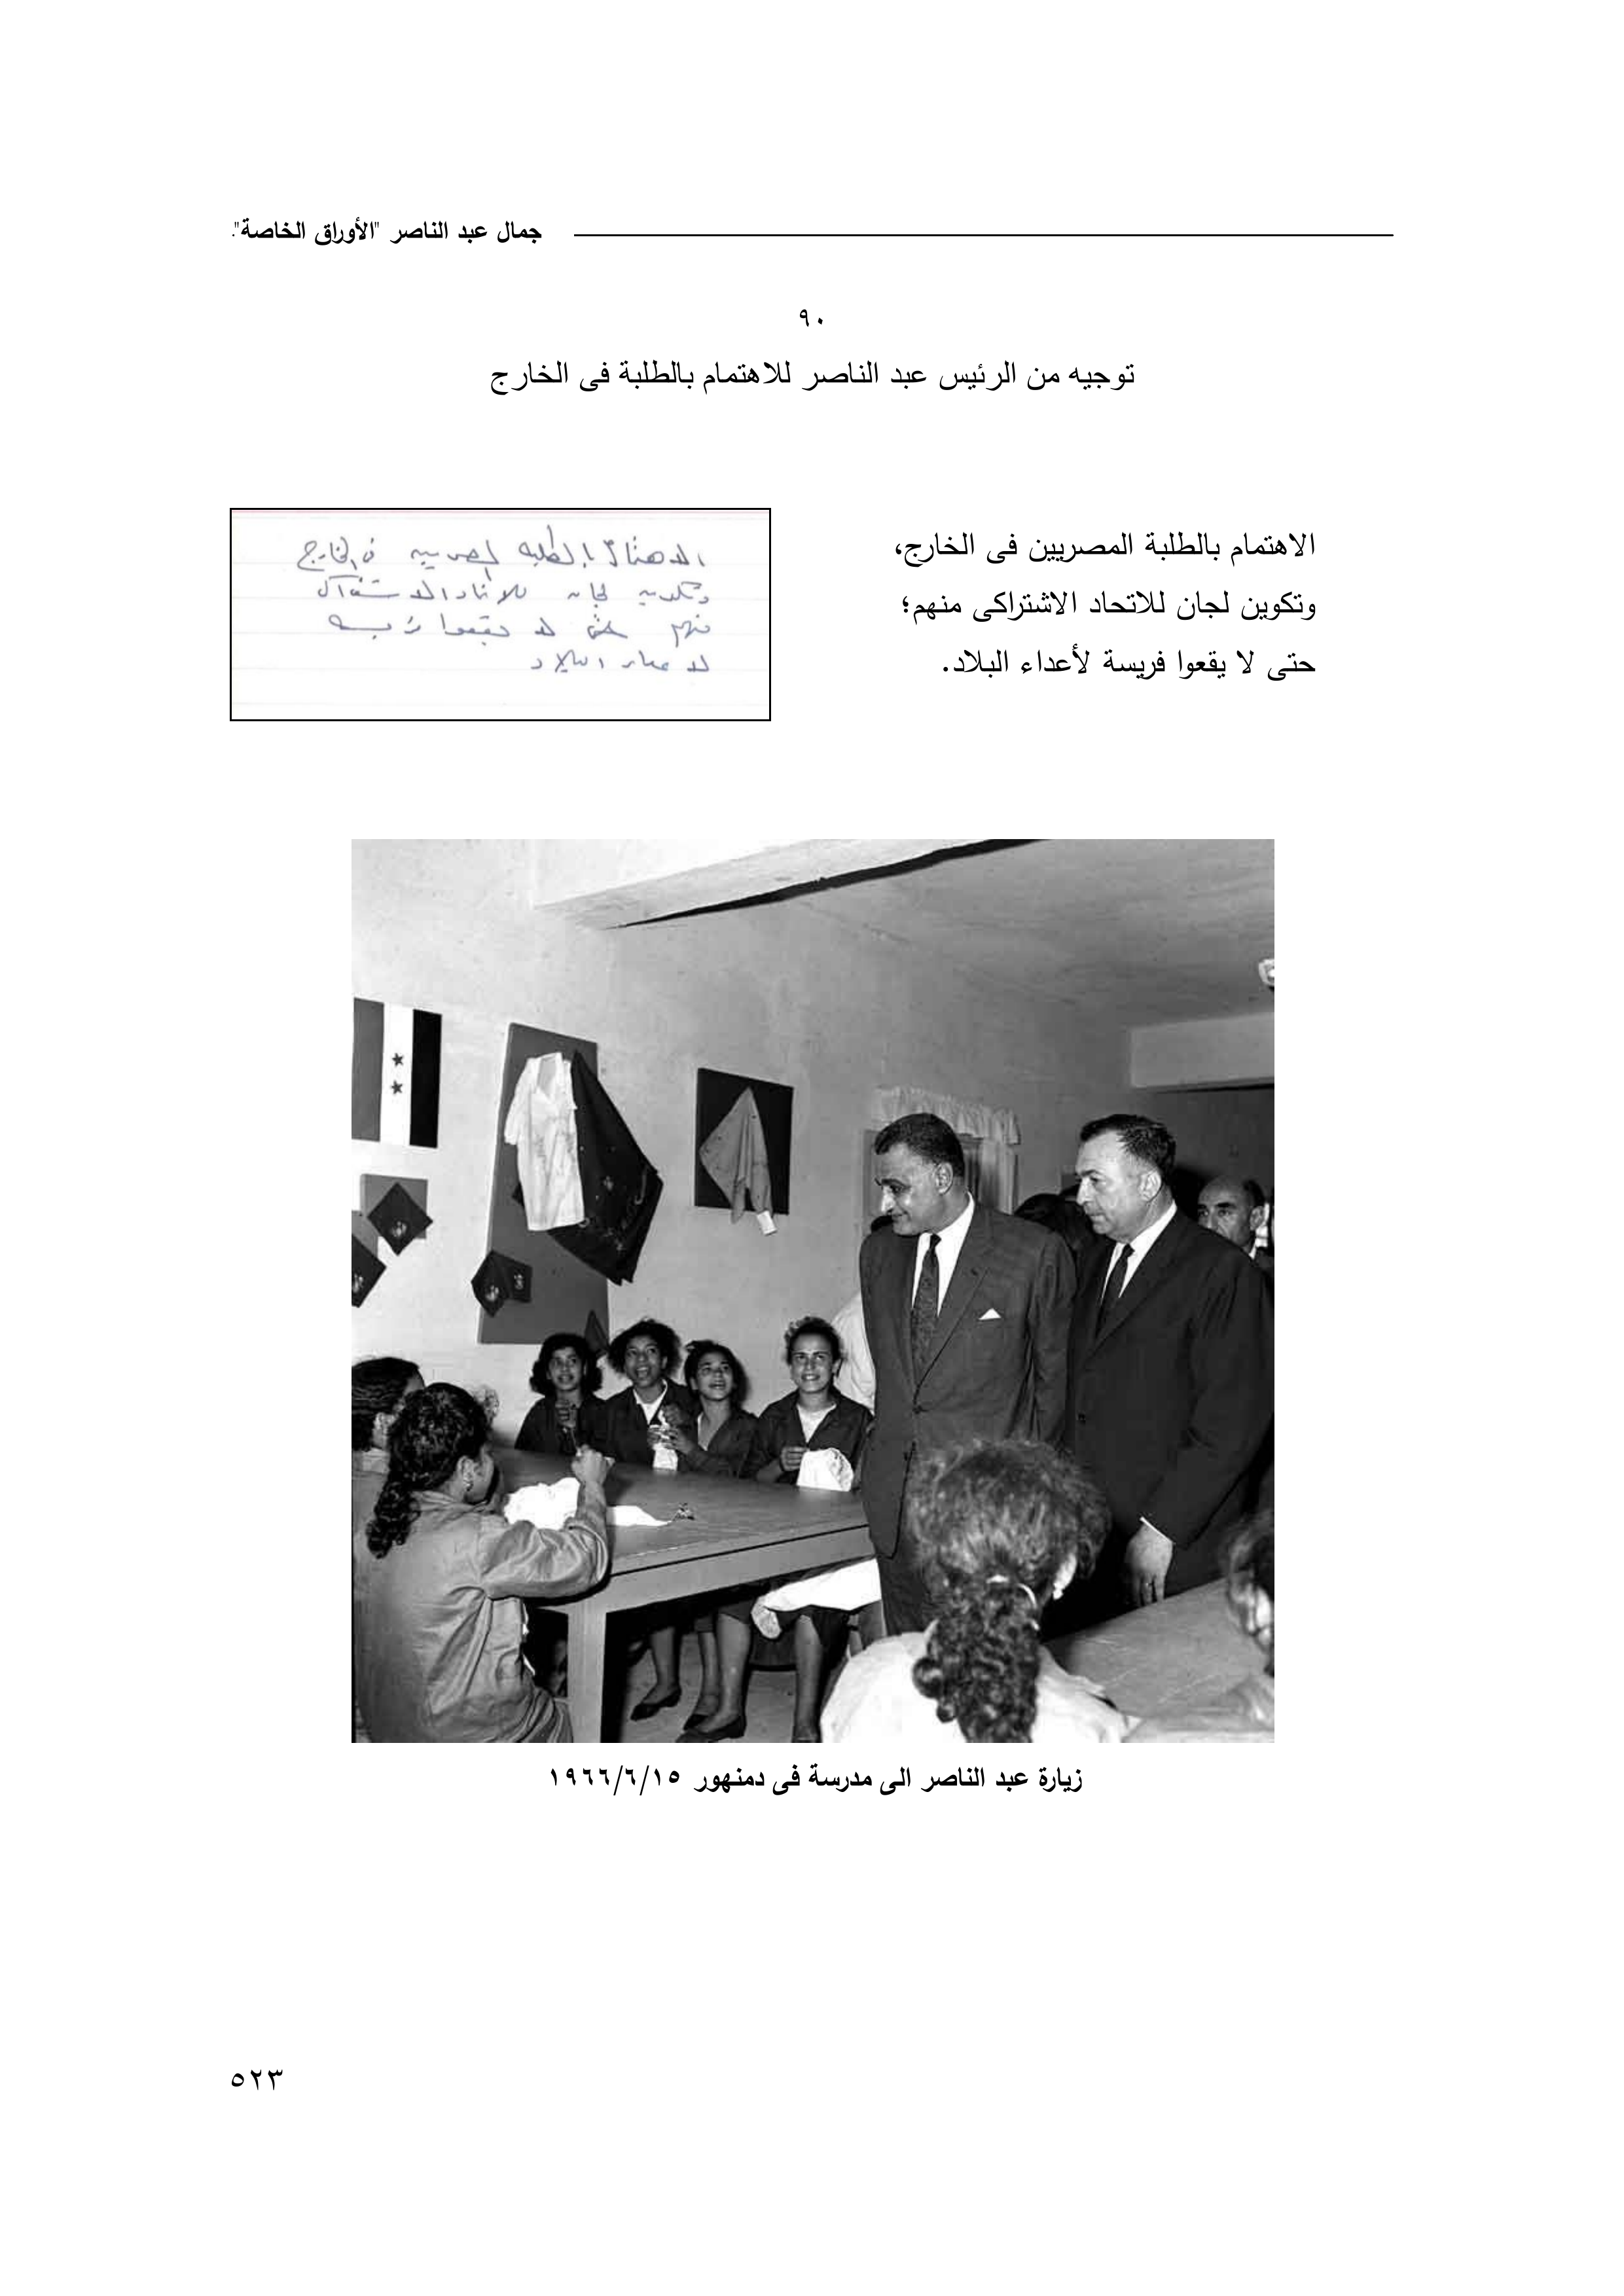 جمال عبد الناصر "الأوراق الخاصة".
٩٠
توجيه من الرئيس عبد الناصر للاهتمام بالطلبة فى الخارج
الاهتمام بالطلبة المصريين فى الخارج،
وتكوين لجان للاتحاد الاشتراكى منهم؛
حتى لا يقعوا فريسة لأعداء البلاد.
الاهتمام بالطلبه المصريين فى الخارج
وتكوين لجان للاتحاد الاشتراكى
منهم حتى لا يقعوا فريسه
لاعداء البلاد
زيارة عبد الناصر الى مدرسة فى دمنهور ١٩٦٦/٦/١٥
٥٢٣